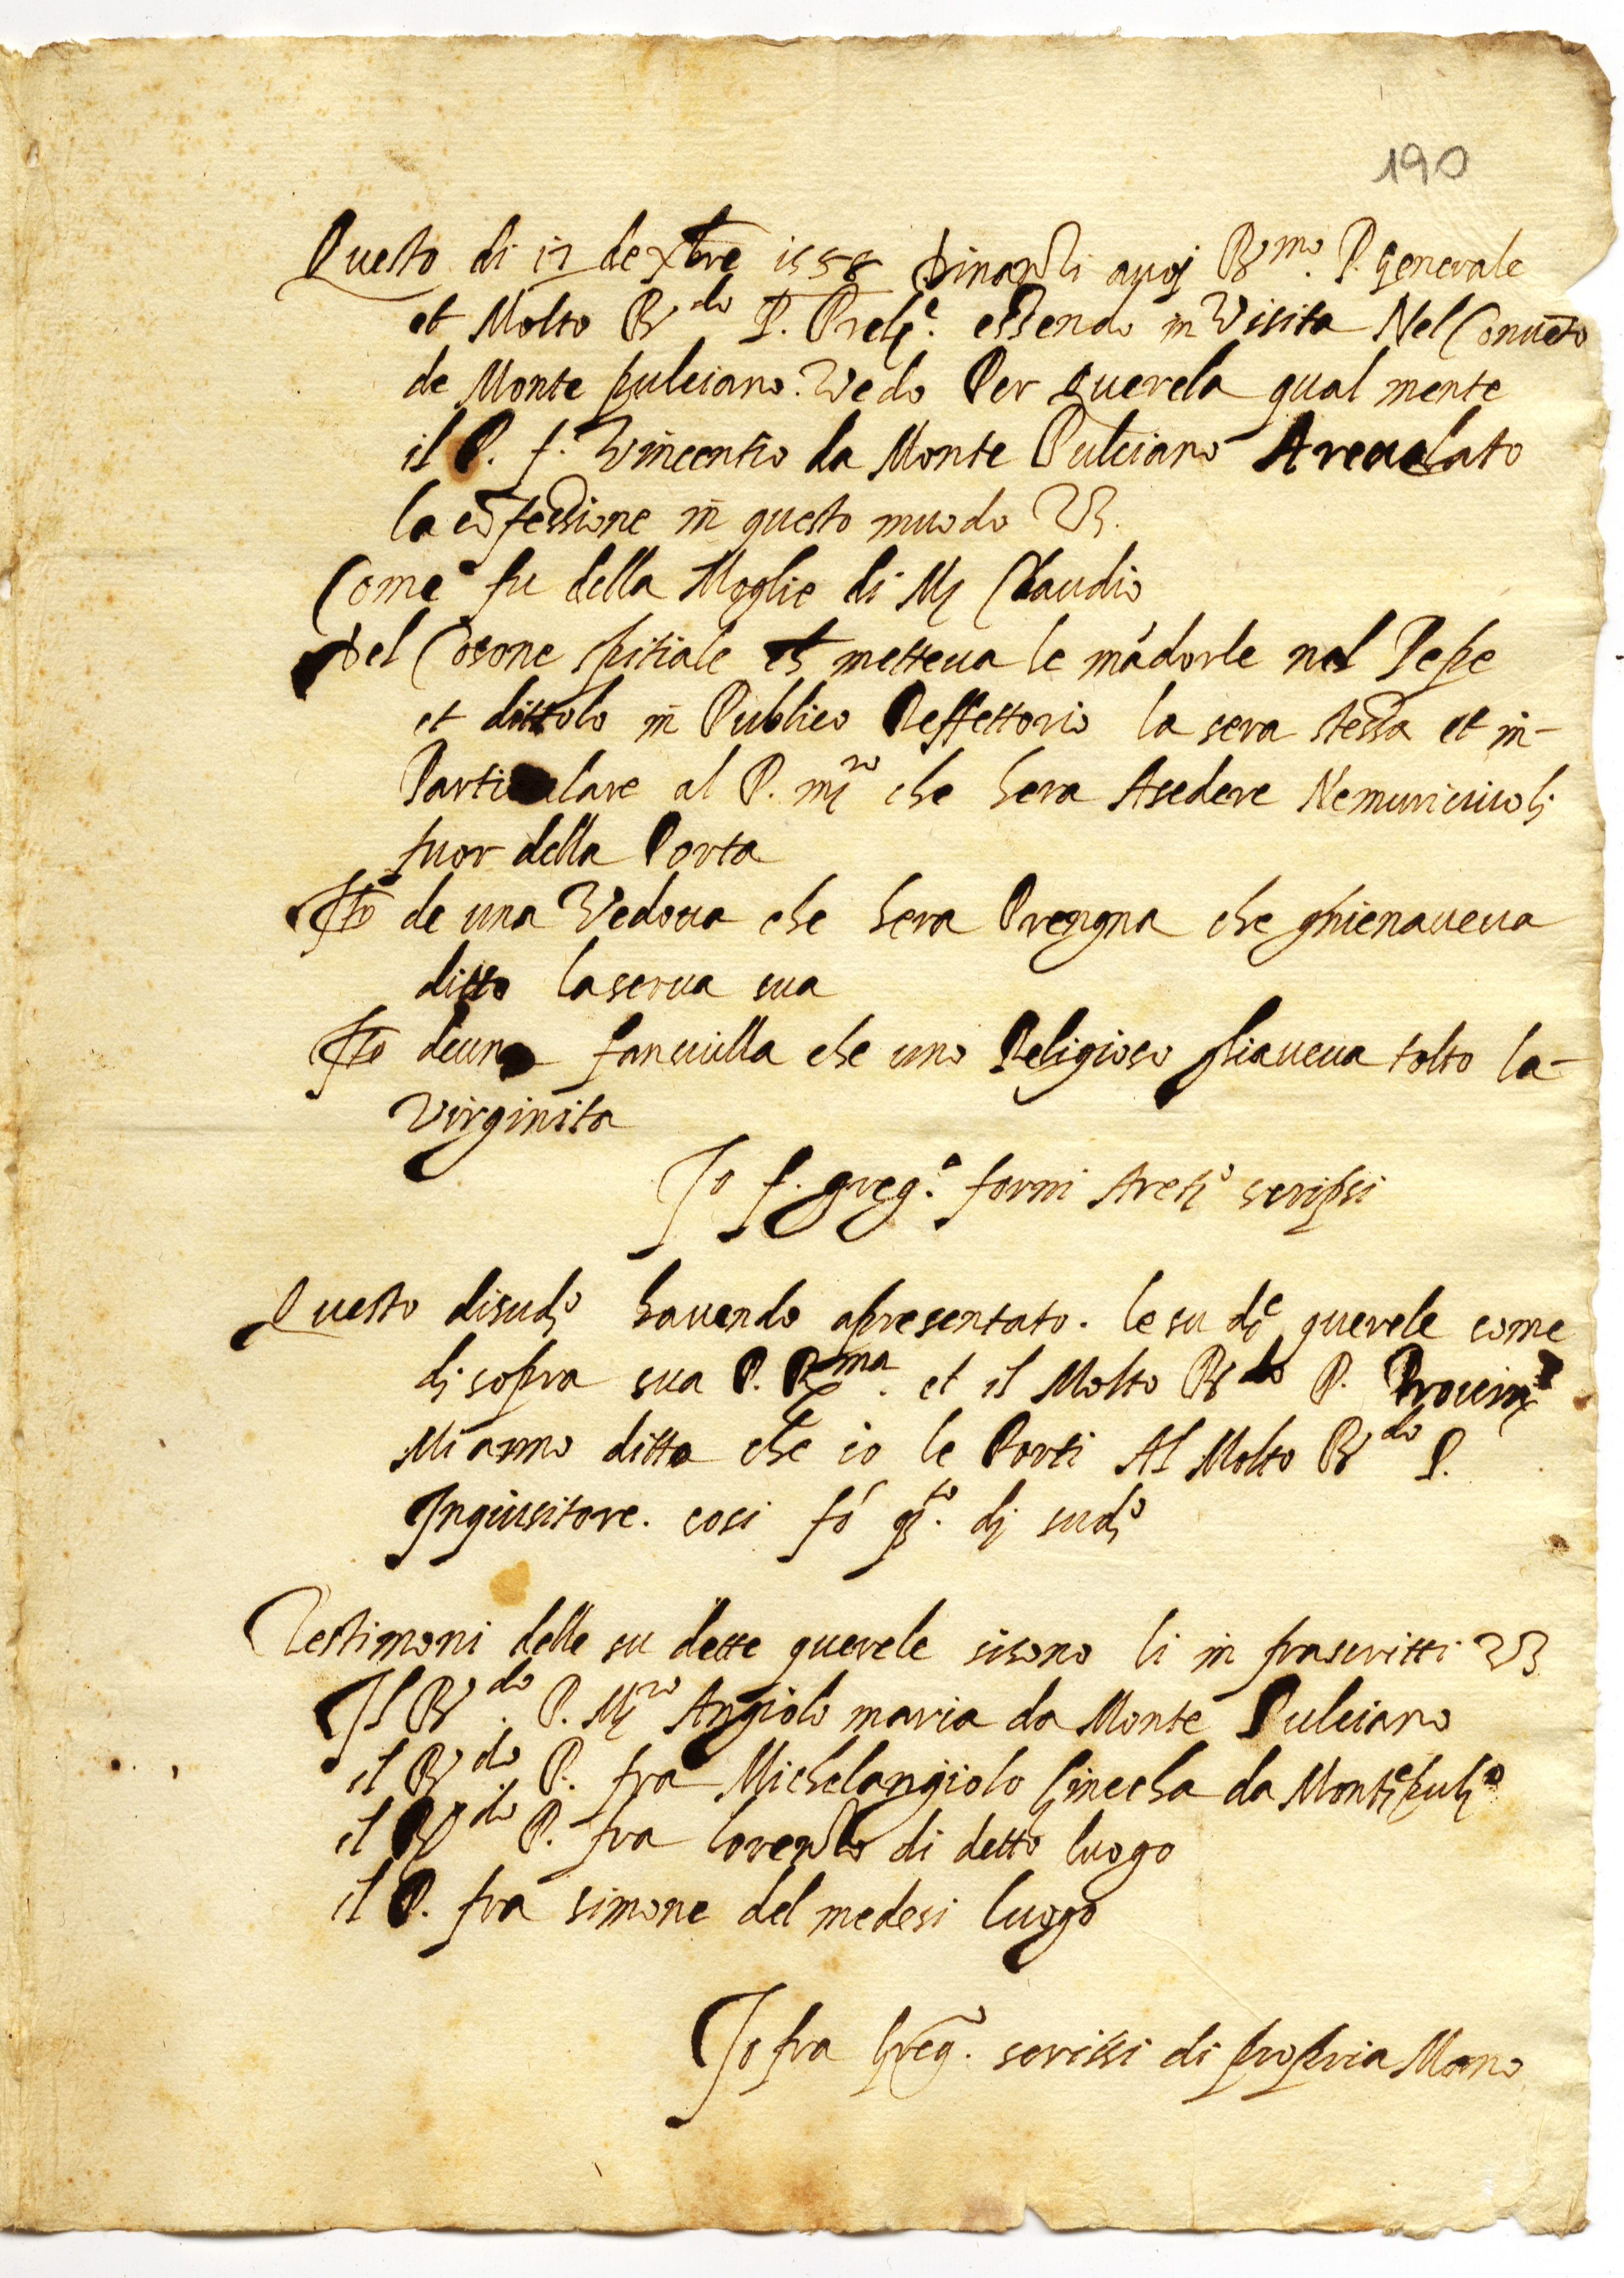 190
Questo di 17 de xbre 1558 dinanzi avoj R.mo P. Generale
et Molto R.do P. essendo in Visita Nel Conueto
de Monte pulciano. Vedo Per querela qual mente
il P. f. Vincentio da Monte Pulciano A reuelato
la cõfessione in questo muodo
Come fu della Moglie di Mº Claudio
del Cosone spitiale che metteua le mãdorle nel Pepe
et dittolo in Publico Reffettorio la sera stessa et in-
Particulare al P. mro che hera Asedere Nemuricciuoli
fuor della Porta
Itº de una Vedoua che hera Prengna che ghienaueua
ditto laserua sua
Itº deuna fanciulla che uno Religioso gliaueua tolto la-
Virginita
Io f. greg.º forni Aretº scripsi
Questo disudº hauendo apresentato. le su dte querele come
dj sopra sua P. R.ma et il Molto R.do P. Prouin.
Mi anno ditto che io le Porti Al Molto R.do P.
Inquisitore. cosi fó q.to dj sudº
Testimoni delle su dette querele sisono li in frascritti
Il R.do P. Mro Angiolo maria da Monte Pulciano
il R.do P. fra Michelangiolo da Montepulº
il R.do P. fra lorenzo di detto luogo
il P. fra simone del medesi luogo
Io fra Greg.º scrissi di propria Mano